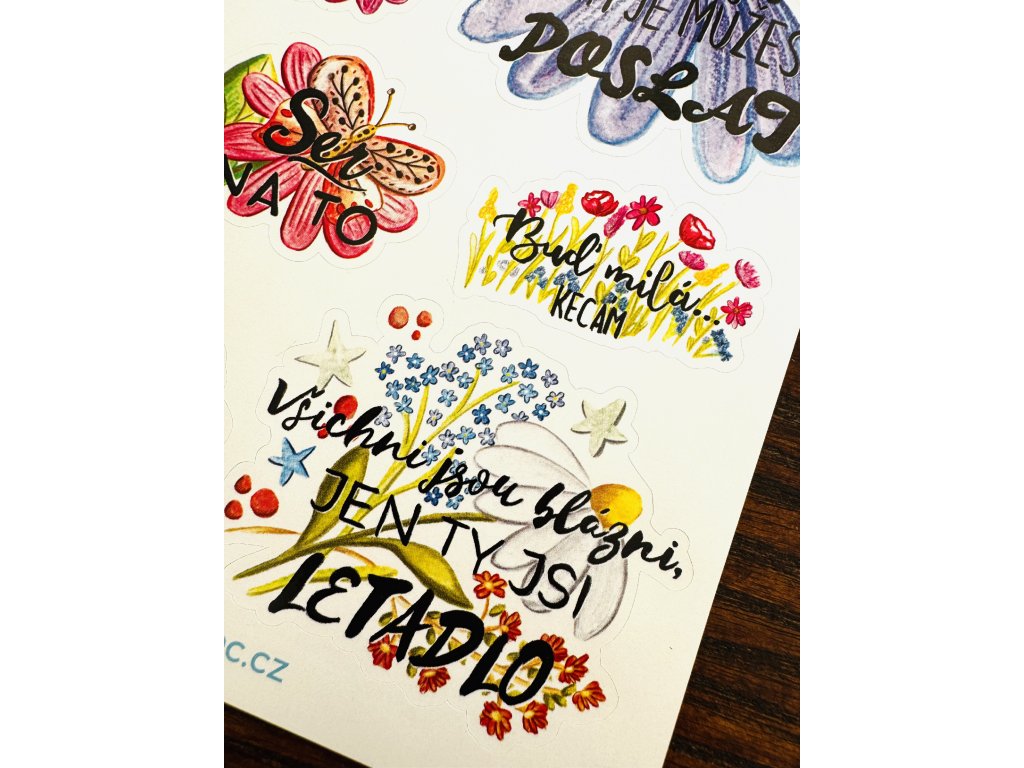 JE MŮŽEŠ
POSLAT
Ser
NA TO
Buď milá...
KECÁM
Všichni jsou blázni,
JEN TY JSI
LETADLO
C.CZ